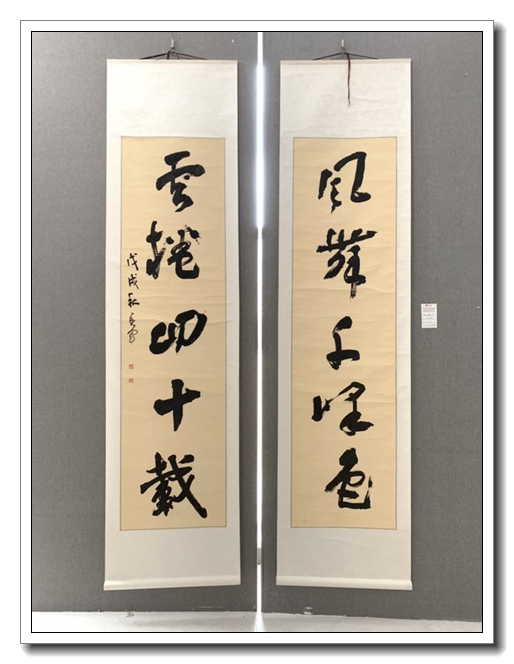 风舞千峰色
雲捲四十載
戊戌秋